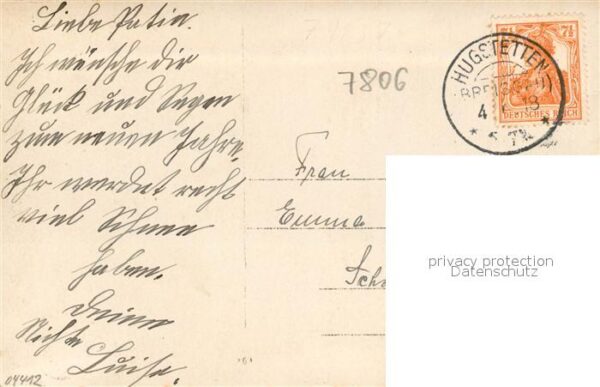 Liebe Patin.
Ich wünsche dir
Glück und Segen
zum neuen Jahre.
Ihr werdet recht
viel Schnee
haben.
Deine
Nichte
Luise.
04412
7806
HUGSTETTEN
(BREISGAU)
7½
DEUTSCHES REICH
Frau
Emma
privacy protection
Datenschutz